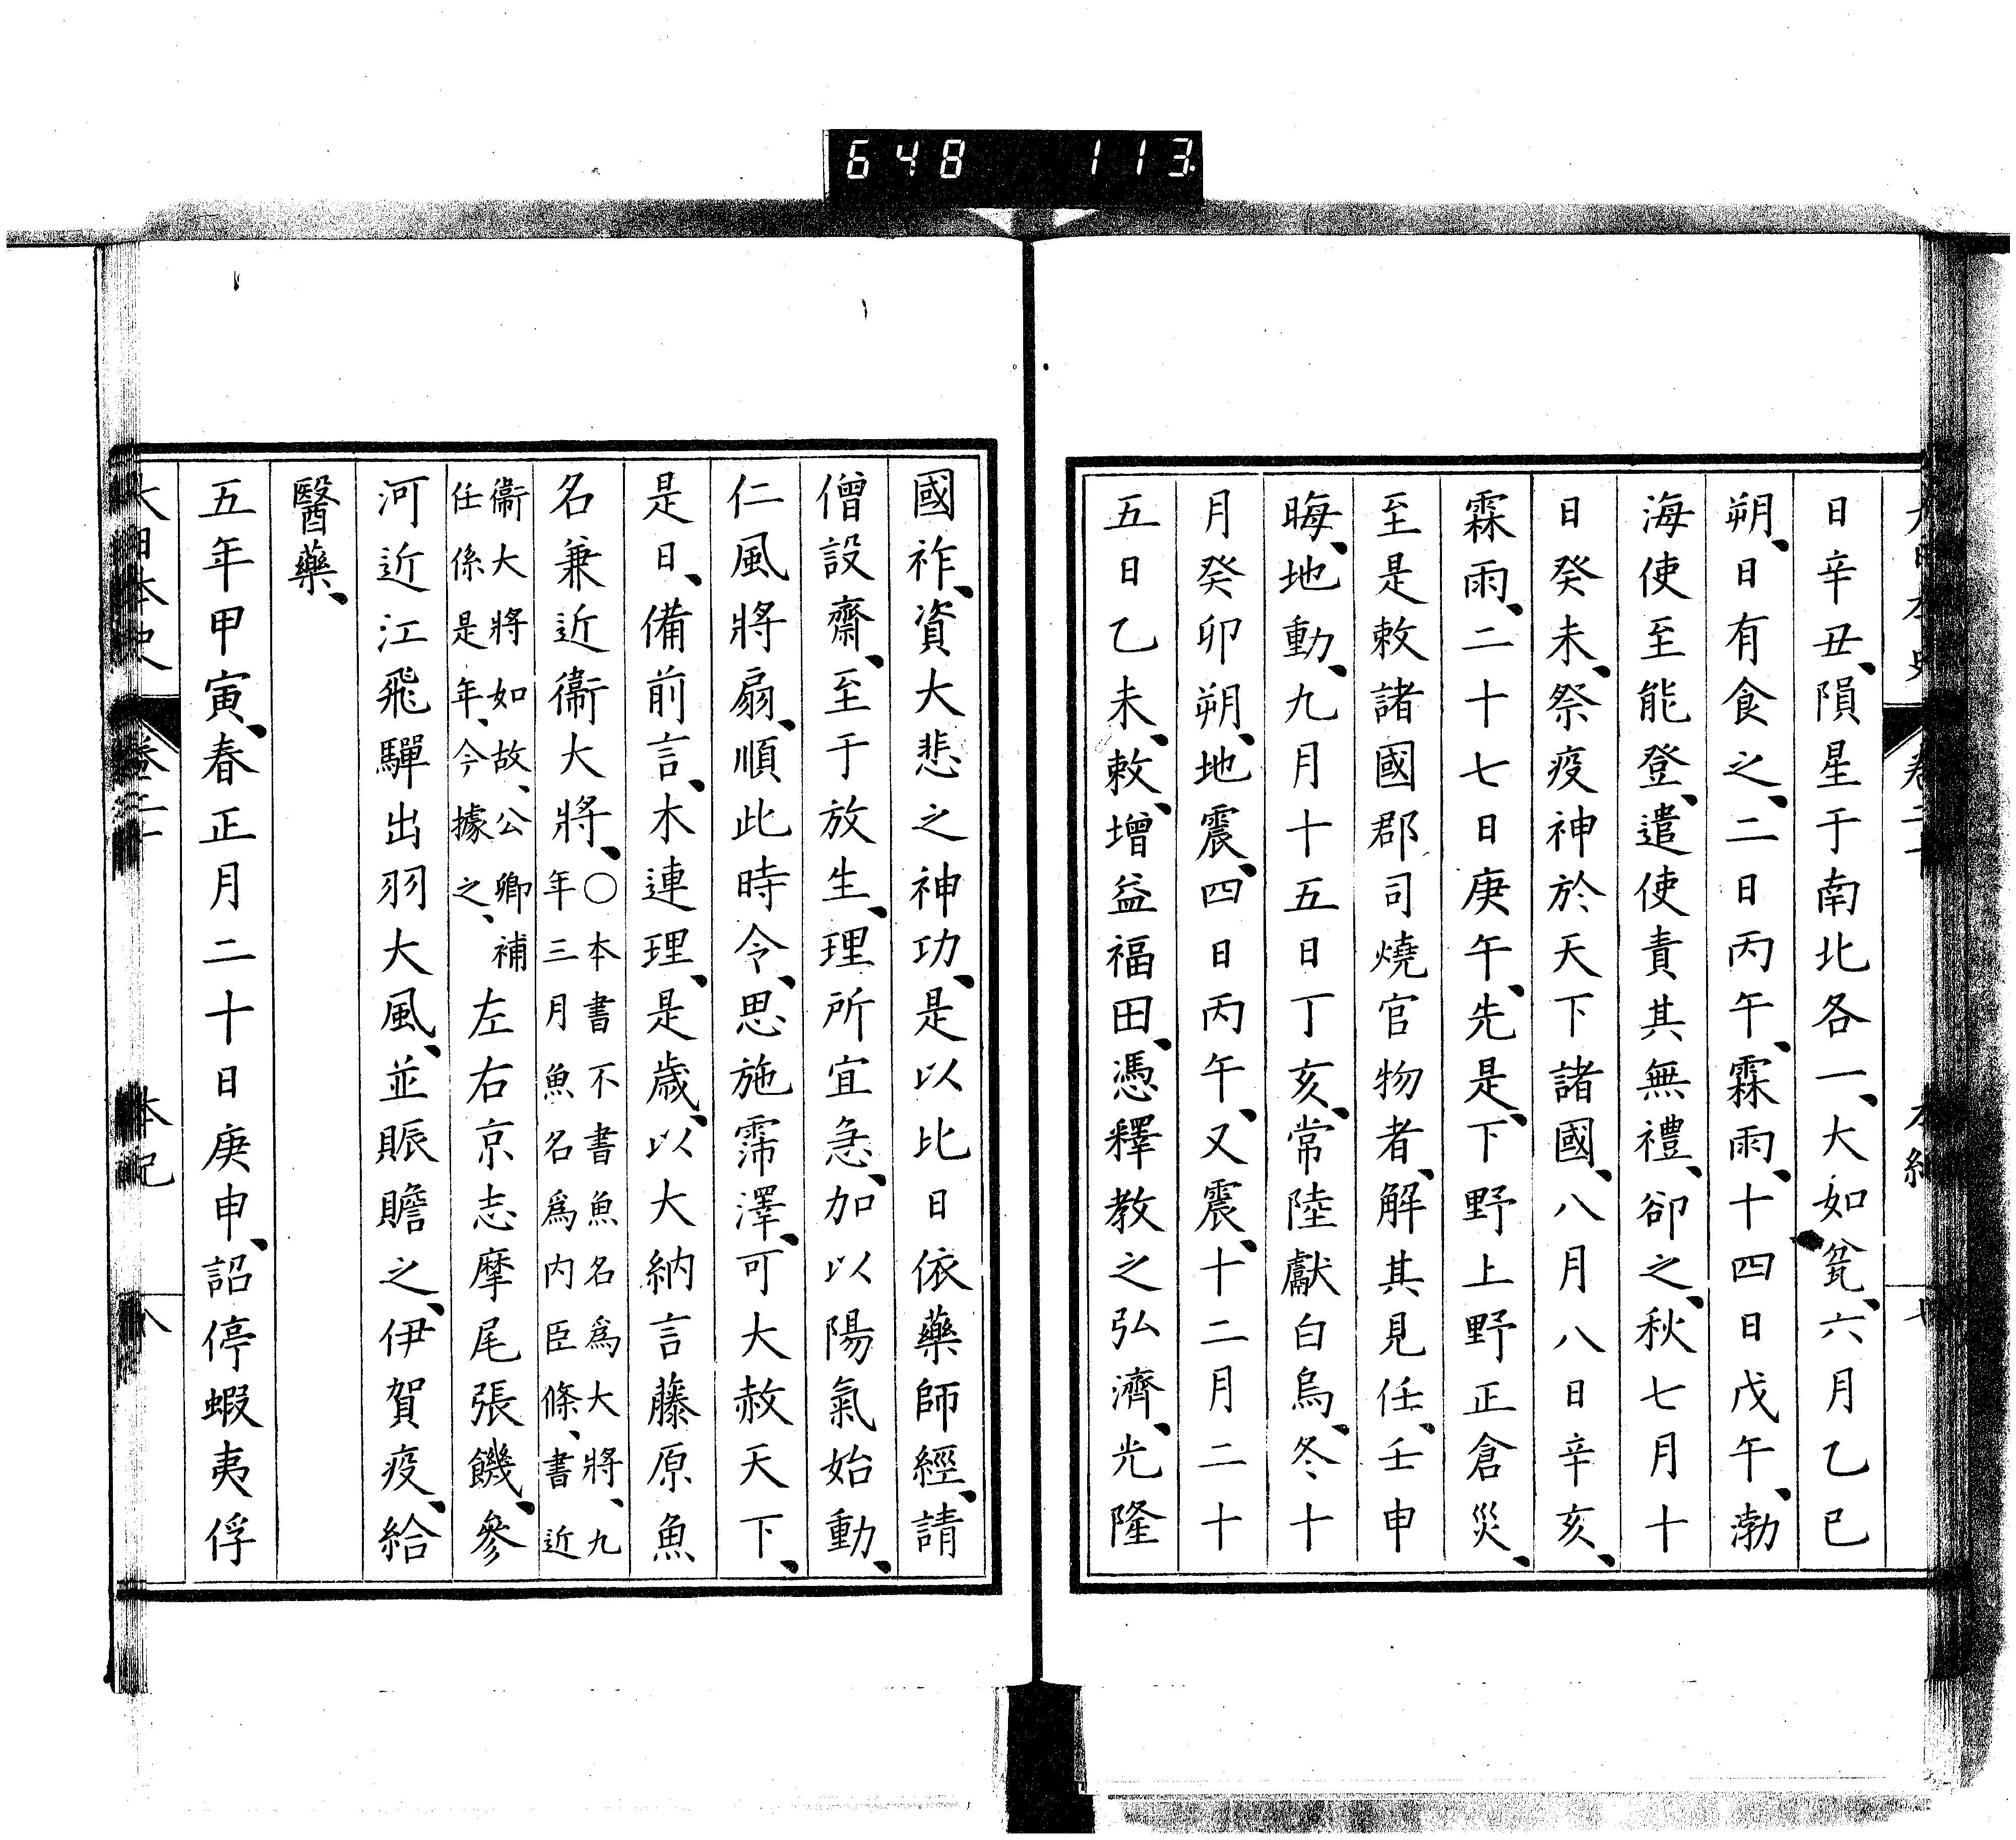 648 113
日辛丑、隕星于南北各一、大如瓫、六月乙巳
朔、日有食之、二日丙午、霖雨、十四日戊午、渤
海使至能登、遣使責其無禮、卻之、秋七月十
日癸未、祭疫神於天下諸國、八月八日辛亥、
霖雨、二十七日庚午、先是、下野上野正倉災、
至是敕諸國郡司燒官物者、解其見任、壬申
晦、地動、九月十五日丁亥、常陸獻白烏、冬十
月癸卯朔、地震、四日丙午、又震、十二月二十
五日乙未、敕、增益福田、憑釋教之弘濟、光隆
國祚、資大悲之神功、是以比日依藥師經、請
僧設齋、至于放生、理所宜急、加以陽氣始動、
仁風將扇、順此時令、思施霈澤、可大赦天下、
是日、備前言、木連理、是歲、以大納言藤原魚
名兼近衞大將、
〇本書不書魚名爲大將、九
年三月魚名爲内臣條、書近
衞大將如故、公卿補
任係是年、今據之、
左右京志摩尾張饑、參
河近江飛驒出羽大風、並賑贍之、伊賀疫、給
醫藥、
五年甲寅、春正月二十日庚申、詔停蝦夷俘
大日本史 本紀 八